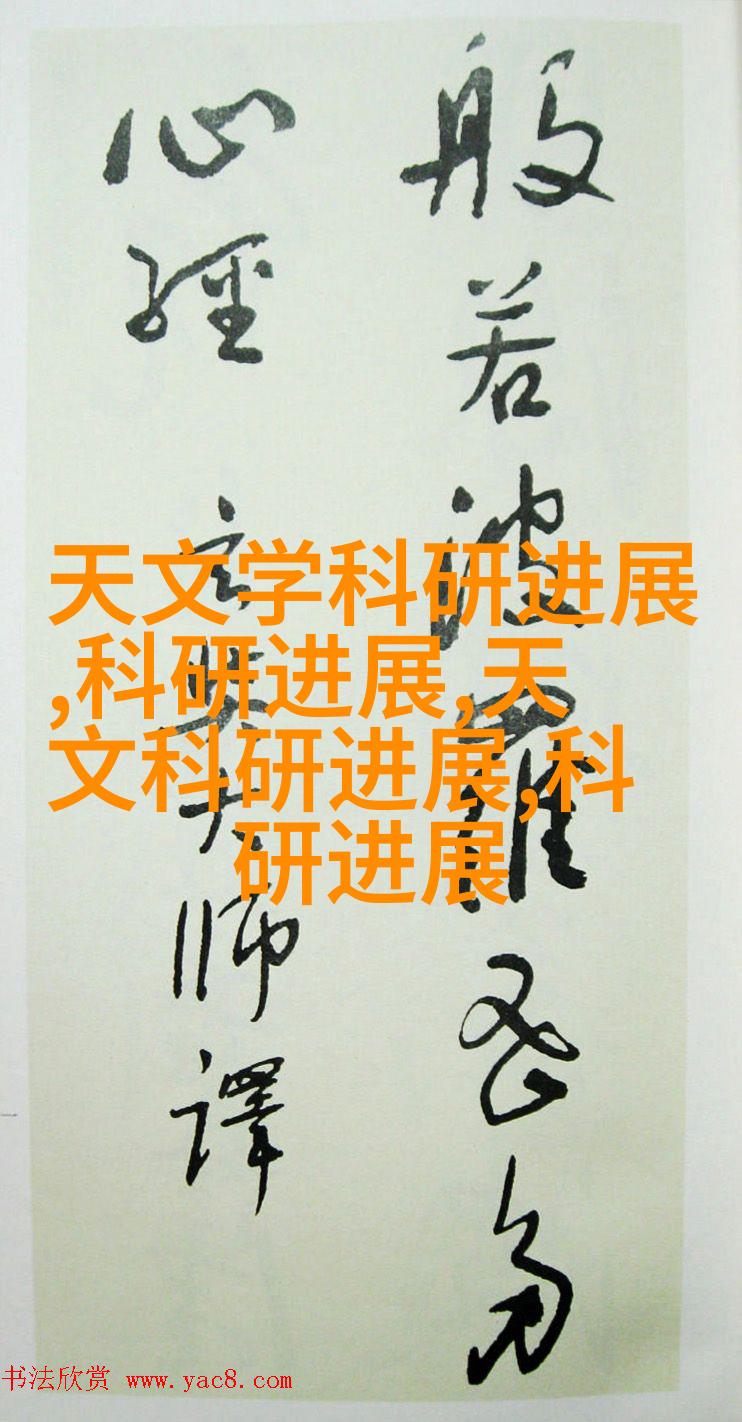 般若波羅蜜多
心經 玄奘大师譯
天文学科研进展
,科研进展,天
文科研进展,科
研进展
书法欣赏 www.yac8.com